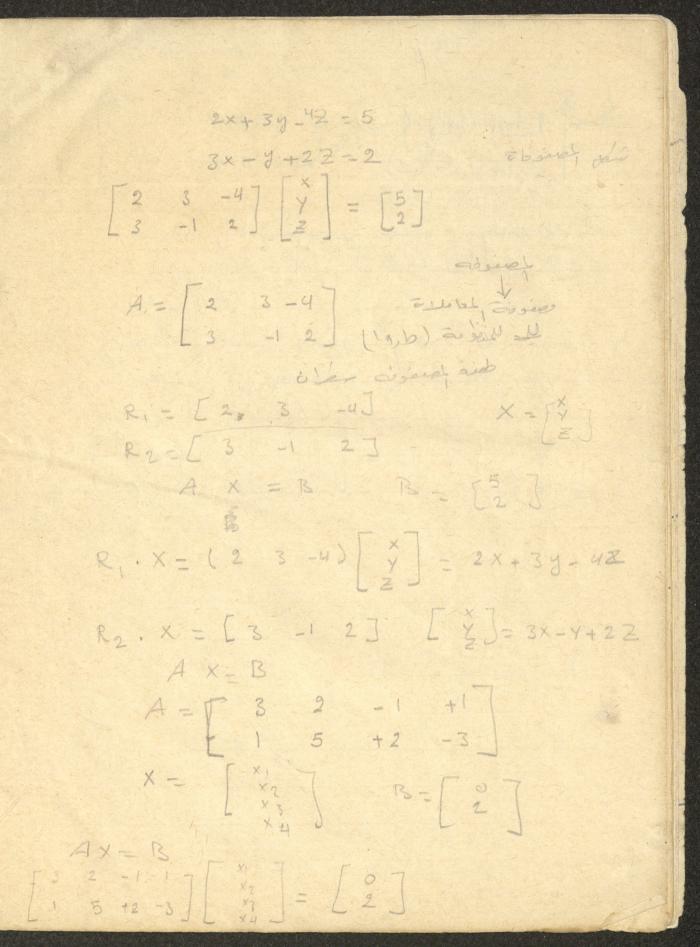 2x + 3y - 4Z = 5
3x - y + 2Z = 2 شكل المصفوفة
[2 3 -4
3 -1 2] [x
y
z] = [5
2]
المصفوفة
↓
A = [2 3 -4
3 -1 2] مصفوفة المعاملات
للمنظومة
المصفوفة سطران
R1 = [2 3 -4] X = [x
y
z]
R2 = [3 -1 2]
A X = B B = [5
2]
R1 . X = (2 3 -4) [x
y
z] = 2x + 3y - 4Z
R2 . X = [3 -1 2] [x
y
z] = 3x - y + 2Z
A X = B
A = [3 2 -1 +1
1 5 +2 -3]
X = [x1
x2
x3
x4] B = [0
2]
AX = B
[3 2 -1 1
1 5 +2 -3] [x1
x2
x3
x4] = [0
2]